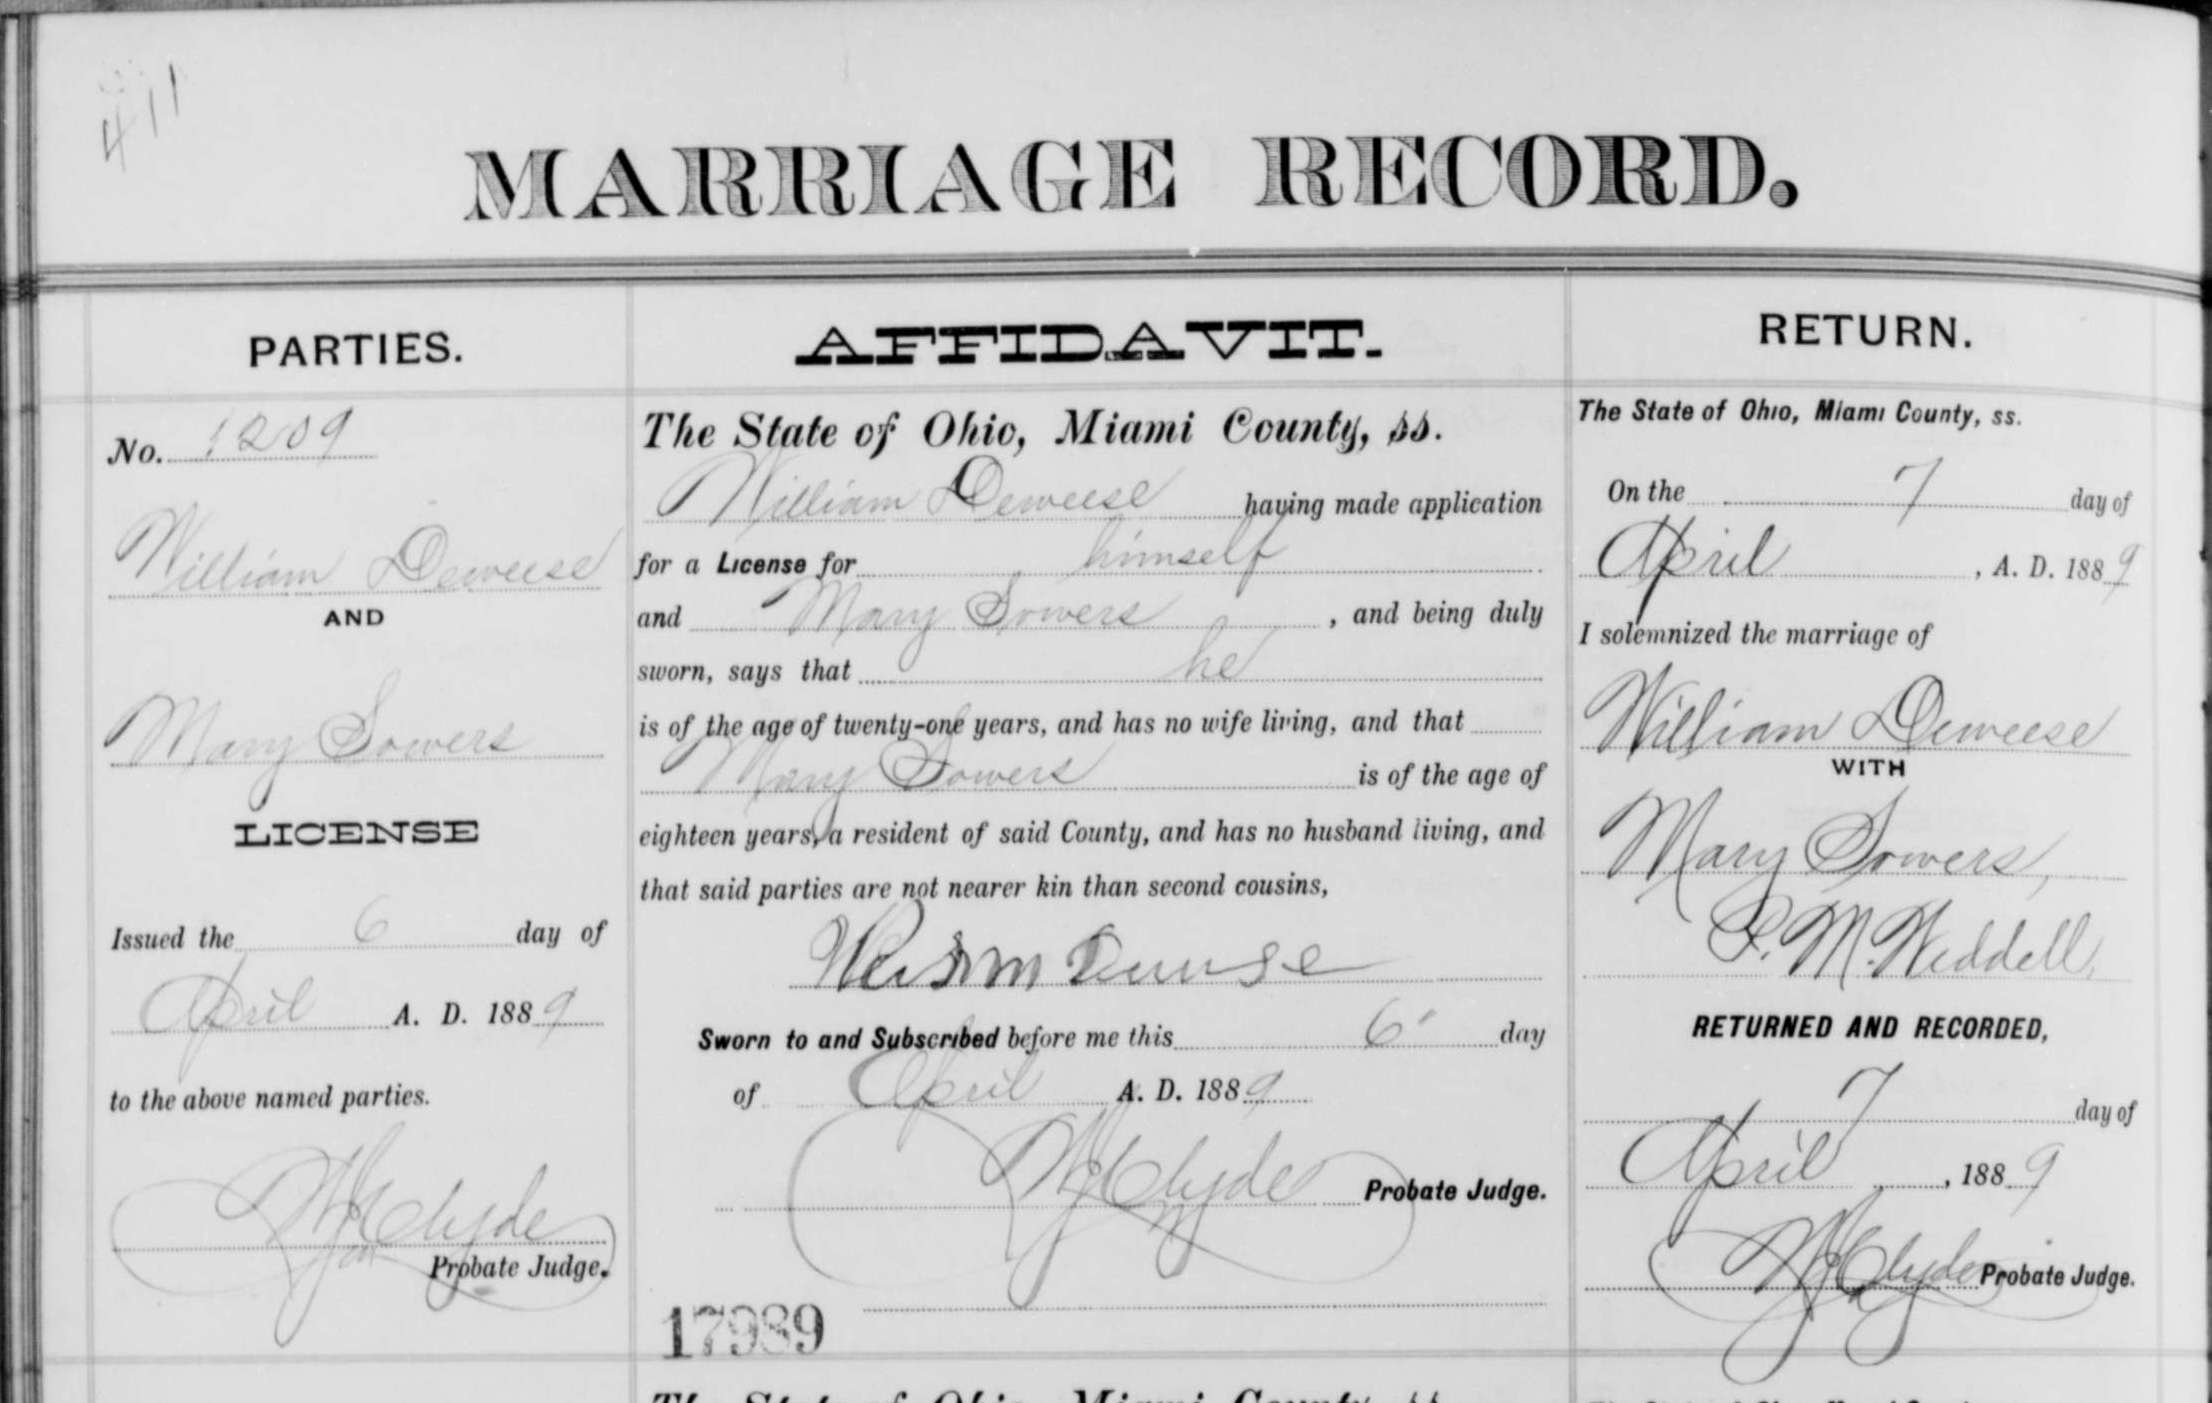 411
MARRIAGE RECORD.
PARTIES.
No. 1209
William Deweese
AND
Mary Sowers
LICENSE
Issued the 6 day of
April A. D. 1889
to the above named parties.
WJClyde
Probate Judge.
AFFIDAVIT.
The State of Ohio, Miami County, ss.
William Deweese having made application
for a License for himself
and Mary Sowers, and being duly
sworn, says that he
is of the age of twenty-one years, and has no wife living, and that
Mary Sowers is of the age of
eighteen years, a resident of said County, and has no husband living, and
that said parties are not nearer kin than second cousins,
Sworn to and Subscribed before me this 6 day
of April A. D. 1889
WJClyde Probate Judge.
17989
RETURN.
The State of Ohio, Miami County, ss.
On the 7 day of
April, A. D. 1889
I solemnized the marriage of
William Deweese
WITH
Mary Sowers,
P. M. Weddell,
RETURNED AND RECORDED,
7 day of
April, 1889
WJClyde Probate Judge.
The State of Ohio, Miami County, ss.